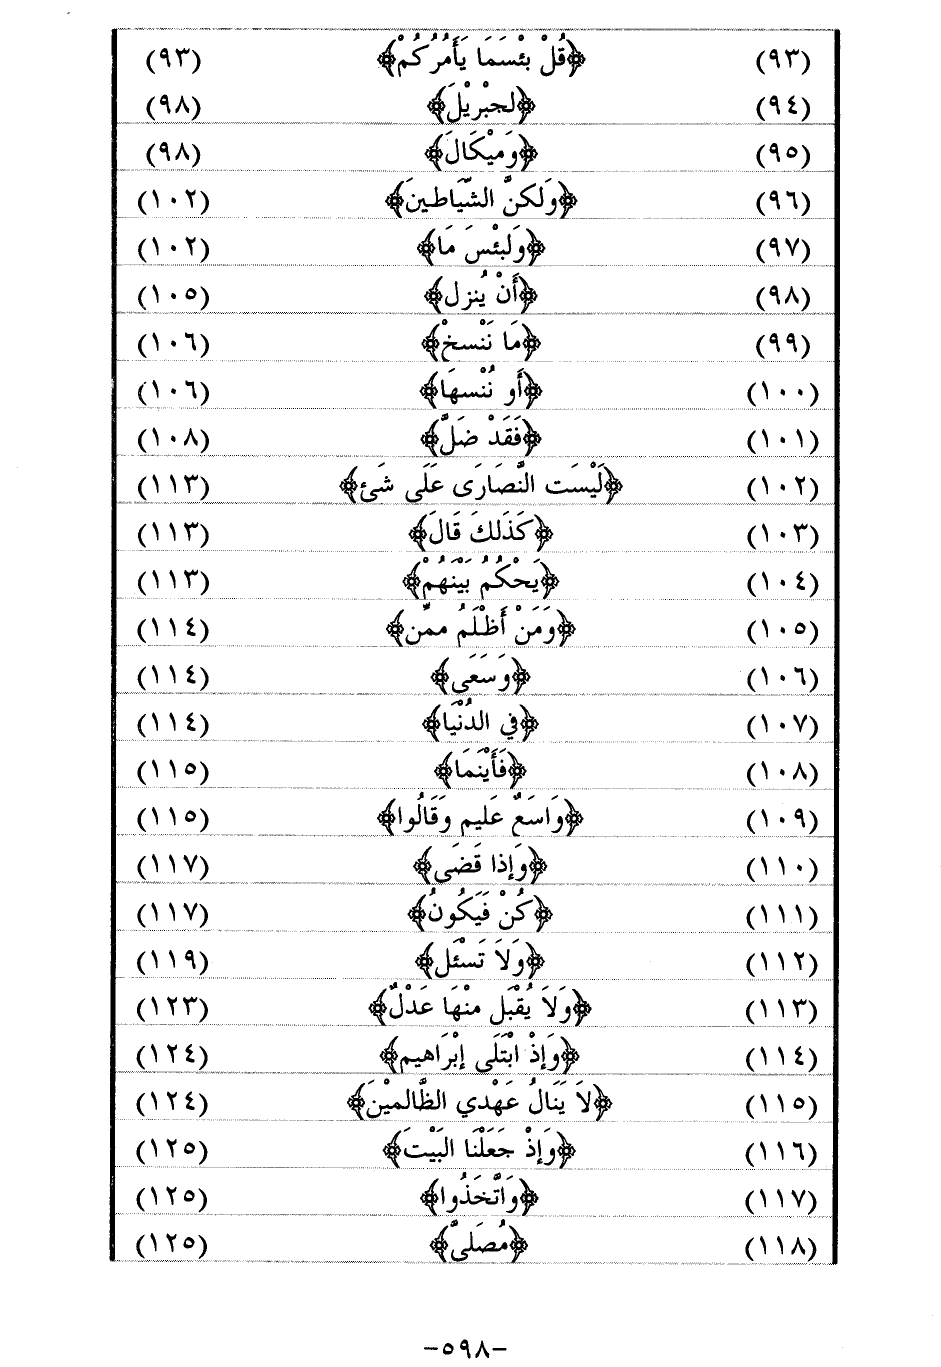 (٩٣) ﴿قُلْ بِئْسَمَا يَأْمُرُكُمْ﴾ (٩٣)
(٩٤) ﴿لجبْرِيْلَ﴾ (٩٨)
(٩٥) ﴿وَميْكَالَ﴾ (٩٨)
(٩٦) ﴿وَلكنَّ الشَّيَاطينَ﴾ (١٠٢)
(٩٧) ﴿وَلبئْسَ مَا﴾ (١٠٢)
(٩٨) ﴿أَنْ يُنزل﴾ (١٠٥)
(٩٩) ﴿مَا نَنْسخْ﴾ (١٠٦)
(١٠٠) ﴿أَو نُنْسهَا﴾ (١٠٦)
(١٠١) ﴿فَقَدْ ضَلَّ﴾ (١٠٨)
(١٠٢) ﴿لَيْسَت النَّصَارَى عَلَى شَئ﴾ (١١٣)
(١٠٣) ﴿كَذَلكَ قَالَ﴾ (١١٣)
(١٠٤) ﴿يَحْكُمُ بَيْنَهُمْ﴾ (١١٣)
(١٠٥) ﴿وَمَنْ أَظْلَمُ ممَّن﴾ (١١٤)
(١٠٦) ﴿وَسَعَى﴾ (١١٤)
(١٠٧) ﴿في الدُنْيَا﴾ (١١٤)
(١٠٨) ﴿فَأَيْنَمَا﴾ (١١٥)
(١٠٩) ﴿وَاسَعٌ عَليم وَقَالُوا﴾ (١١٥)
(١١٠) ﴿وَإذا قَضَى﴾ (١١٧)
(١١١) ﴿كُنْ فَيَكُونُ﴾ (١١٧)
(١١٢) ﴿وَلاَ تَسْئَل﴾ (١١٩)
(١١٣) ﴿وَلاَ يُقْبَل منْهَا عَدْلٌ﴾ (١٢٣)
(١١٤) ﴿وَإذْ ابْتَلَى إبْرَاهيم﴾ (١٢٤)
(١١٥) ﴿لاَ يَنَالُ عَهْدي الظَّالميْنَ﴾ (١٢٤)
(١١٦) ﴿وَإذْ جَعَلْنَا البَيْتَ﴾ (١٢٥)
(١١٧) ﴿وَاتَّخَذُوا﴾ (١٢٥)
(١١٨) ﴿مُصَلىَّ﴾ (١٢٥)
-٥٩٨-